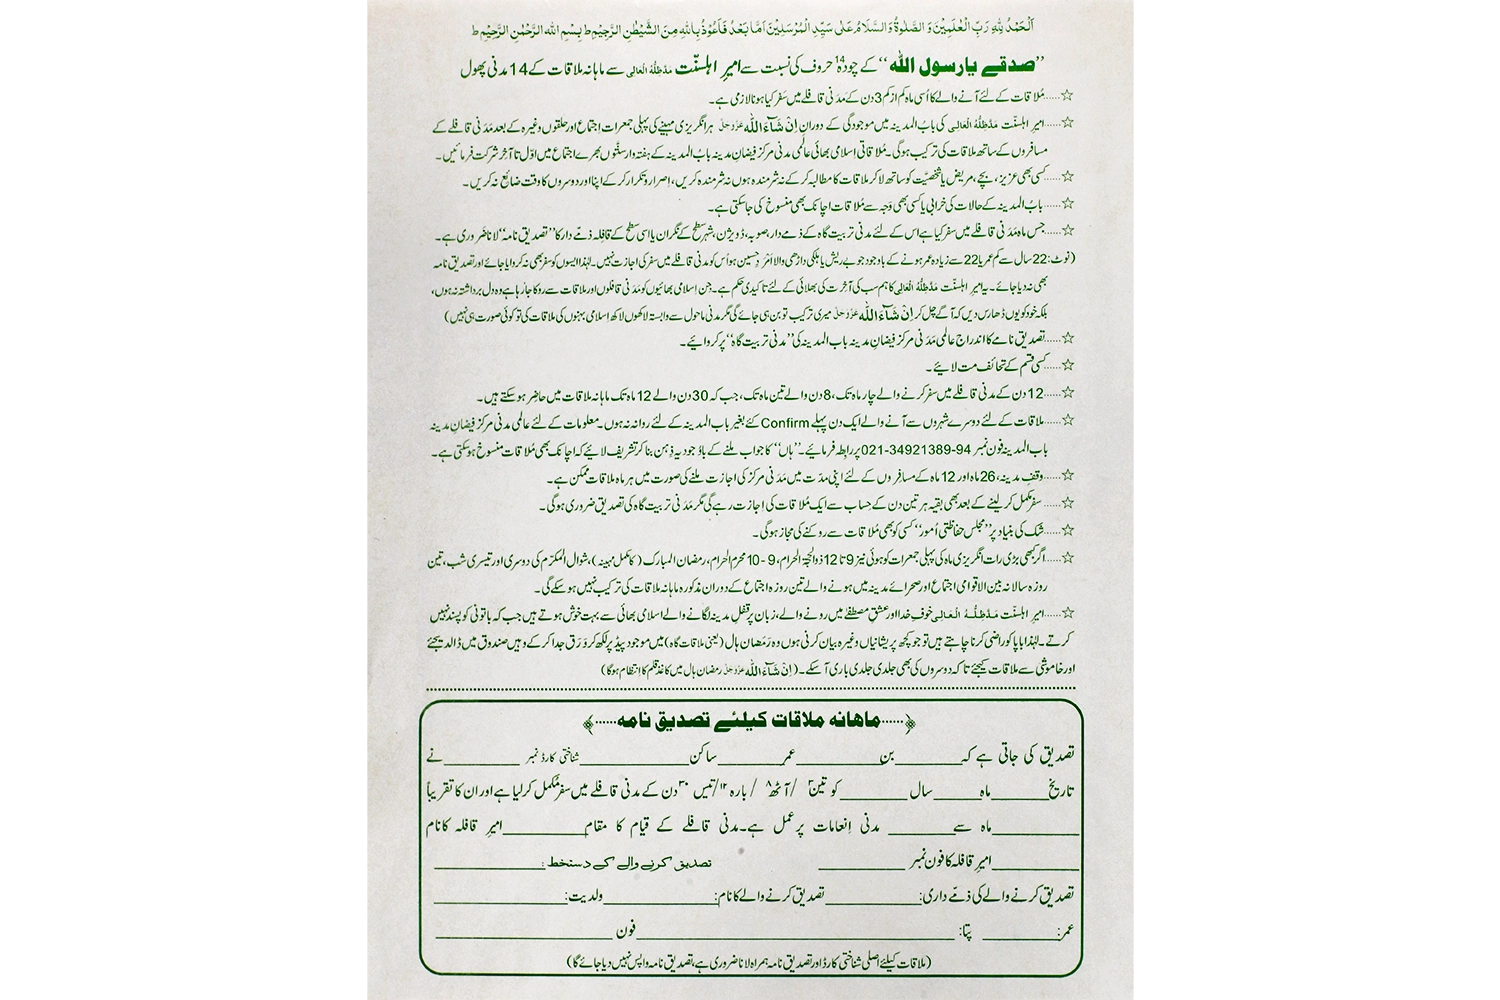 اَلْحَمْدُ لِلّٰهِ رَبِّ الْعٰلَمِيْنَ وَ الصَّلٰوةُ وَالسَّلَامُ عَلٰى سَيِّدِ الْمُرْسَلِيْنَ اَمَّا بَعْدُ فَاَعُوْذُ بِاللّٰهِ مِنَ الشَّيْطٰنِ الرَّجِيْمِ ط بِسْمِ اللهِ الرَّحْمٰنِ الرَّحِيْمِ ط
’’صدقے یارسول اللّٰه‘‘ کے چودہ 14 حروف کی نسبت سے امیرِ اہلسنّت مَدَّظِلُّہُ الْعَالِی سے ماہانہ ملاقات کے 14 مدنی پھول
☆......مُلاقات کے لئے آنے والے کا اُسی ماہ کم از کم 3 دن کے مَدَنی قافلے میں سفر کیا ہونا لازمی ہے۔
☆......امیرِ اہلسنّت مَدَّظِلُّہُ الْعَالِی کی بابُ المدینہ میں موجودگی کے دوران اِنْ شَآءَ اللّٰه عزوجل ہر انگریزی مہینے کی پہلی جمعرات اجتماع اور حلقوں وغیرہ کے بعد مَدَنی قافلے کے
مسافروں کے ساتھ ملاقات کی ترکیب ہوگی۔ مُلاقاتی اِسلامی بھائی عالَمی مدنی مرکز فیضانِ مدینہ بابُ المدینہ کے ہفتہ وار سنّتوں بھرے اجتماع میں اوّل تا آخر شرکت فرمائیں۔
☆......کسی بھی عزیز، بچے، مریض یا شخصیَّت کو ساتھ لا کر ملاقات کا مطالبہ کر کے نہ شرمندہ ہوں نہ شرمندہ کریں، اِصرار و تکرار کر کے اپنا اور دوسروں کا وقت ضائع نہ کریں۔
☆......بابُ المدینہ کے حالات کی خرابی یا کسی بھی وَجہ سے مُلاقات اچانک بھی منسوخ کی جاسکتی ہے۔
☆......جس ماہ مَدَنی قافلے میں سفر کیا ہے اس کے لئے مدنی تربیت گاہ کے ذمے دار، صوبہ، ڈویژن، شہر سطح کے نگران یا اسی سطح کے قافلہ ذمّے دار کا ’’تصدیق نامہ‘‘ لانا ضروری ہے۔
(نوٹ: 22 سال سے کم عمر یا 22 سے زیادہ عمر ہونے کے باوجود جو بے ریش یا ہلکی داڑھی والا اَمْرَدِ حسین ہو اُس کو مدنی قافلے میں سفر کی اجازت نہیں۔ لہٰذا ایسوں کو سفر بھی نہ کروایا جائے اور تصدیق نامہ
بھی نہ دیا جائے۔ یہ امیرِ اہلسنّت مَدَّظِلُّہُ الْعَالِی کا ہم سب کی آخرت کی بھلائی کے لئے تاکیدی حکم ہے۔ جِن اِسلامی بھائیوں کو مَدَنی قافلوں اور ملاقات سے روکا جارہا ہے وہ دل برداشتہ نہ ہوں،
بلکہ خود کو یوں ڈھارس دیں کہ آگے چل کر اِنْ شَآءَ اللّٰه عزوجل میری ترکیب تو بن ہی جائے گی مگر مدنی ماحول سے وابستہ لاکھوں لاکھ اسلامی بہنوں کی ملاقات کی تو کوئی صورت ہی نہیں)
☆......تصدیق نامے کا اندراج عالَمی مَدَنی مرکز فیضانِ مدینہ باب المدینہ کی ’’مدنی تربیت گاہ‘‘ پر کروائیے۔
☆......کسی قسم کے تحائف مت لائیے۔
☆......12 دن کے مدنی قافلے میں سفر کرنے والے چار ماہ تک، 8 دن والے تین ماہ تک، جب کہ 30 دن والے 12 ماہ تک ماہانہ ملاقات میں حاضر ہوسکتے ہیں۔
☆......ملاقات کے لئے دوسرے شہروں سے آنے والے ایک دن پہلے Confirm کئے بغیر باب المدینہ کے لئے روانہ نہ ہوں۔ معلومات کے لئے عالَمی مدنی مرکز فیضانِ مدینہ
باب المدینہ فون نمبر 94-34921389-021 پر رابطہ فرمائیے۔ ’’ہاں‘‘ کا جواب ملنے کے باوجود یہ ذہن بنا کر تشریف لائیے کہ اچانک بھی مُلاقات منسوخ ہوسکتی ہے۔
☆......وقفِ مدینہ، 26 ماہ اور 12 ماہ کے مسافروں کے لئے اپنی مدّت میں مَدَنی مرکز کی اجازت ملنے کی صورت میں ہر ماہ ملاقات ممکن ہے۔
☆......سفر مکمل کر لینے کے بعد بھی بقیہ ہر تین دن کے حساب سے ایک مُلاقات کی اجازت رہے گی مگر مَدَنی تربیت گاہ کی تصدیق ضروری ہوگی۔
☆......شک کی بنیاد پر ’’مجلسِ حفاظتی اُمور‘‘ کسی کو بھی مُلاقات سے روکنے کی مجاز ہوگی۔
☆......اگر کبھی بڑی رات انگریزی ماہ کی پہلی جمعرات کو ہوئی نیز 9 تا 12 ذوالحجۃ الحرام، 9-10 محرم الحرام، رمضان المبارک (کامکمل مہینہ)، شوال المکرّم کی دوسری اور تیسری شب، تین
روزہ سالانہ بین الاقوامی اجتماع اور صحرائے مدینہ میں ہونے والے تین روزہ اجتماع کے دوران مذکورہ ماہانہ ملاقات کی ترکیب نہیں ہوسکے گی۔
☆......امیرِ اہلسنّت مَدَّظِلُّہُ الْعَالِی خوفِ خدا اور عشقِ مصطفٰے میں رونے والے، زبان پر قفلِ مدینہ لگانے والے اسلامی بھائی سے بہت خوش ہوتے ہیں جب کہ باتونی کو پسند نہیں
کرتے۔ لہٰذا باپا کو راضی کرنا چاہتے ہیں تو جو کچھ پریشانیاں وغیرہ بیان کرنی ہوں وہ رَمَضان ہال (یعنی ملاقات گاہ) میں موجود پیڈ پر لکھ کر وَرَق جدا کر کے وہیں صندوق میں ڈالدیجئے
اور خاموشی سے ملاقات کیجئے تاکہ دوسروں کی بھی جلدی جلدی باری آسکے۔ (اِنْ شَآءَ اللّٰه عزوجل رمضان ہال میں کاغذ قلم کا اِنتظام ہوگا)
﴿......ماہانہ ملاقات کیلئے تصدیق نامہ......﴾
تصدیق کی جاتی ہے کہ________بن________عمر________ساکن________شناختی کارڈ نمبر________نے
تاریخ________ماہ________سال________کو تین ۳/ آٹھ ۸/ بارہ ۱۲/ تیس ۳۰ دن کے مدنی قافلے میں سفر مُکمل کرلیا ہے اور ان کا تقریباً
________ماہ سے________مدنی اِنعامات پر عمل ہے۔ مدنی قافلے کے قیام کا مقام________امیرِ قافلہ کا نام
________امیرِ قافلہ کا فون نمبر________تصدیق کرنے والے کے دستخط:________
تصدیق کرنے والے کی ذمّے داری:________تصدیق کرنے والے کا نام:________ولدیت:________
عمر:________پتا:________فون________
(ملاقات کیلئے اصلی شناختی کارڈ اور تصدیق نامہ ہمراہ لانا ضروری ہے، تصدیق نامہ واپس نہیں دیا جائے گا)